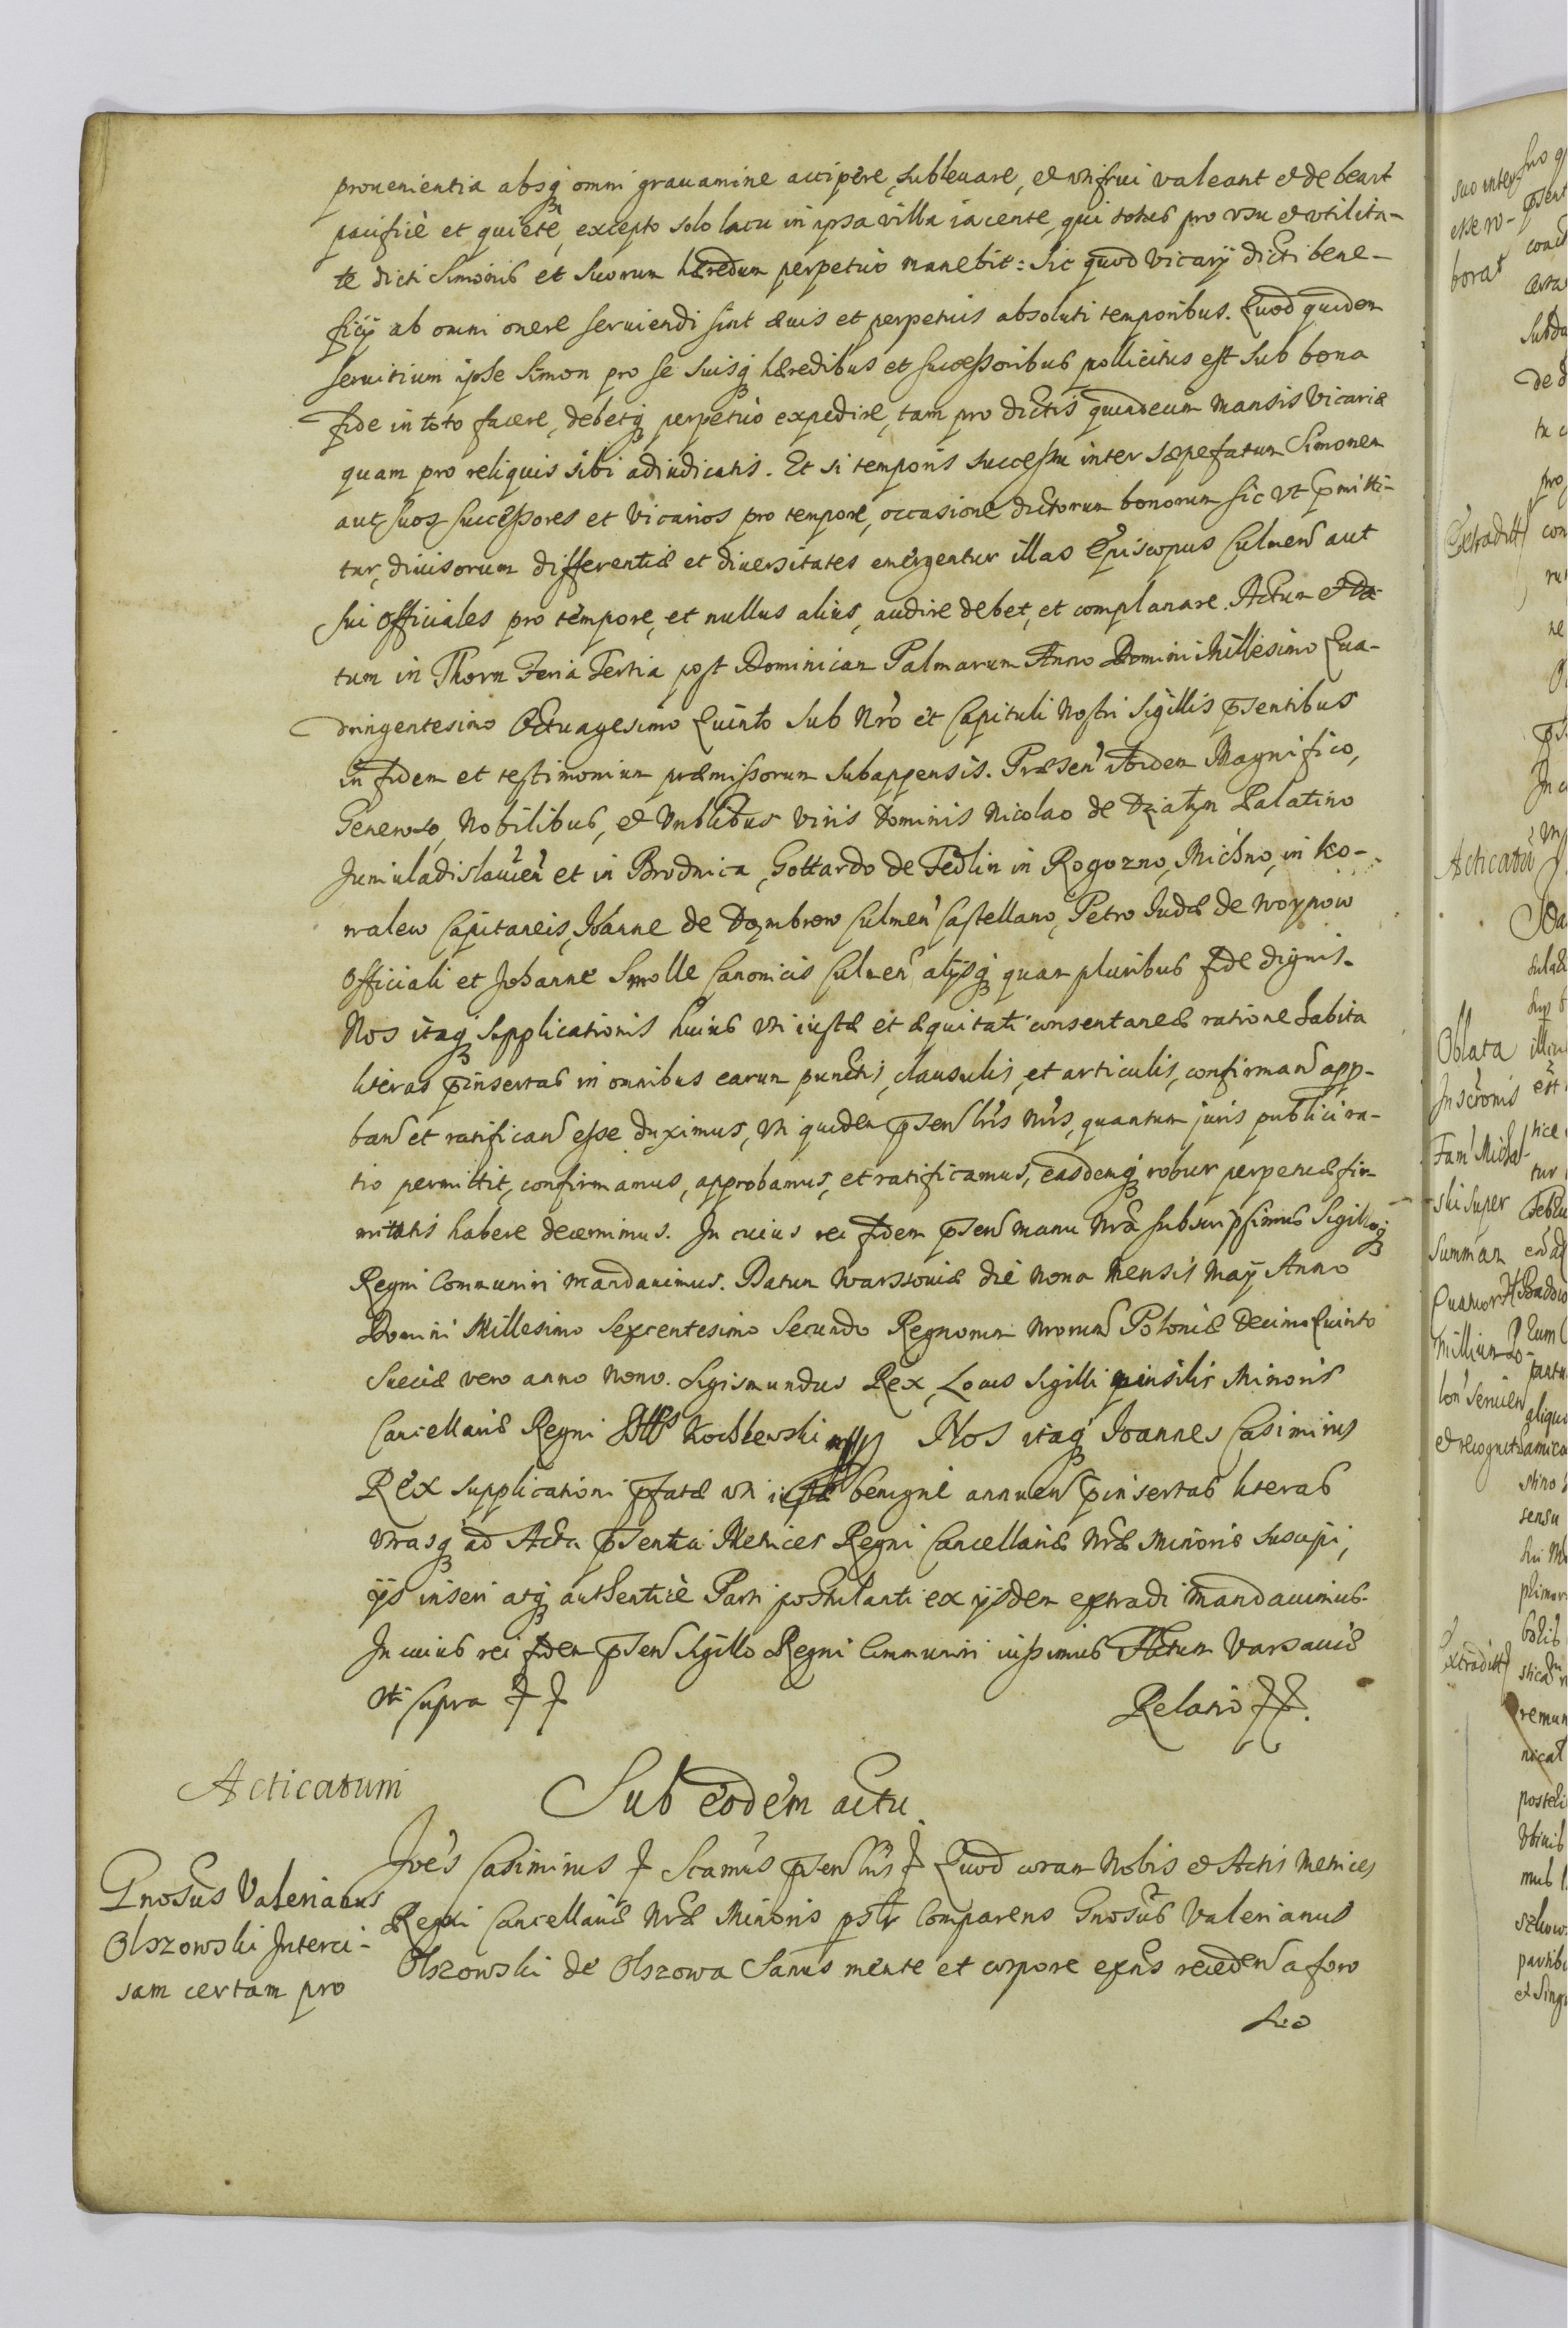 prouenientia absq omni grauamine accipere, subleuare, et vtifrui valeant et debeant
pacificè et quietè, excepto solo lacu in ipsa villa iacente, qui totus pro vsu et vtilita-
te dicti Simonis et suorum hæredum perpetuò manebit: Sic quod vicarij dicti bene-
ficij ab omni onere seruiendi sint æuis et perpetuis absoluti temporibus. Quod quidem
seruitium ipse Simon pro se suisq hæredibus et successoribus pollicitus est sub bona
fide in toto facere, debetq perpetuò expedire, tam pro dictis quindecim mansis Vicariæ
quam pro reliquis sibi adiudicatis. Et si temporis successu inter sæpefatum Simonem
aut suos successores et Vicarios pro tempore, occasione dictorum bonorum sic vt pmitti-
tur, diuisorum differentiæ et diuersitates emergentur illas Episcopus Culmen aut
sui officiales pro tempore, et nullus alius, audire debet, et complanare. Actum et Da-
tum in Thorn Feria Tertia post Dominicam Palmarum Anno Domini Millesimo Qua-
dringentesimo Octuagesimo Quinto sub Nro et Capituli Nostri Sigillis psentibus
in fidem et testimonium præmissorum subappensis. Præsen ibidem Magnifico,
Generoso, Nobilibus, et Vnblibus viris Dominis Nicolao de Dziatyn Palatino
Juniuladislauien et in Brodnica, Gottardo de Tedlin in Rogozno, Michno, in Ko-
walew Capitaneis, Johanne de Dombrow Culmen Castellano, Petro Judæ de Woypow
Officiali et Johanne Smolle Canonicis Culmen alijsq quam pluribus fide dignis.
Nos itaq supplicationis huius vti iustæ et æquitati consentaneæ ratione habita
literas pinsertas in omnibus earum punctis, clausulis, et articulis, confirmand app-
band et ratificand esse duximus, vti quidem psen lris nris, quantum juris publici ra-
tio permittit, confirmamus, approbamus, et ratificamus, easdemq robur perpetuæ fir-
mitatis habere decernimus. In cuius rei fidem psen manu nra subscripsimus Sigilloq
Regni Communiri mandauimus. Datum Warssouiæ die Nona Mensis Maÿ Anno
Domini Millesimo Sexcentesimo Secundo Regnorum Nrorum Poloniæ Decimo Quinto
Sueciæ vero anno Nono. Sigismundus Rex, Locus Sigilli pensilis Minoris
Cancellariæ Regni Kochlewski mpp Nos itaq Joannes Casimirus
Rex supplicationi pfatæ vti iustæ benigne annuen pinsertas literas
vtrasq ad Acta psentia Metrices Regni Cancellariæ Nræ Minoris suscipi,
ijs inseri atq authenticè Parti postulanti ex ijsdem extradi mandauimus.
In cuius rei fidem psen Sigillo Regni Communiri iussimus Actum Varsauiæ
vti supra
Relatio
Acticatum
Sub eodem actu
Joes Casimirus Scamus psen lris Quod coram Nobis et Actis Metrices
Regni Cancellariæ Nræ Minoris pstr Comparens Gnosus Valerianus
Olszowski de Olszowa Sanus mente et corpore exns receden a foro
suo
Gnosus Valerianus
Olszowski Interci-
sam certam pro
suo inter
Extraditt
Acticatu
Oblata
Inscronis
Fam Michal-
ski super
Summam
Quatuor
Millium Po-
lon
et recognit
extraditt